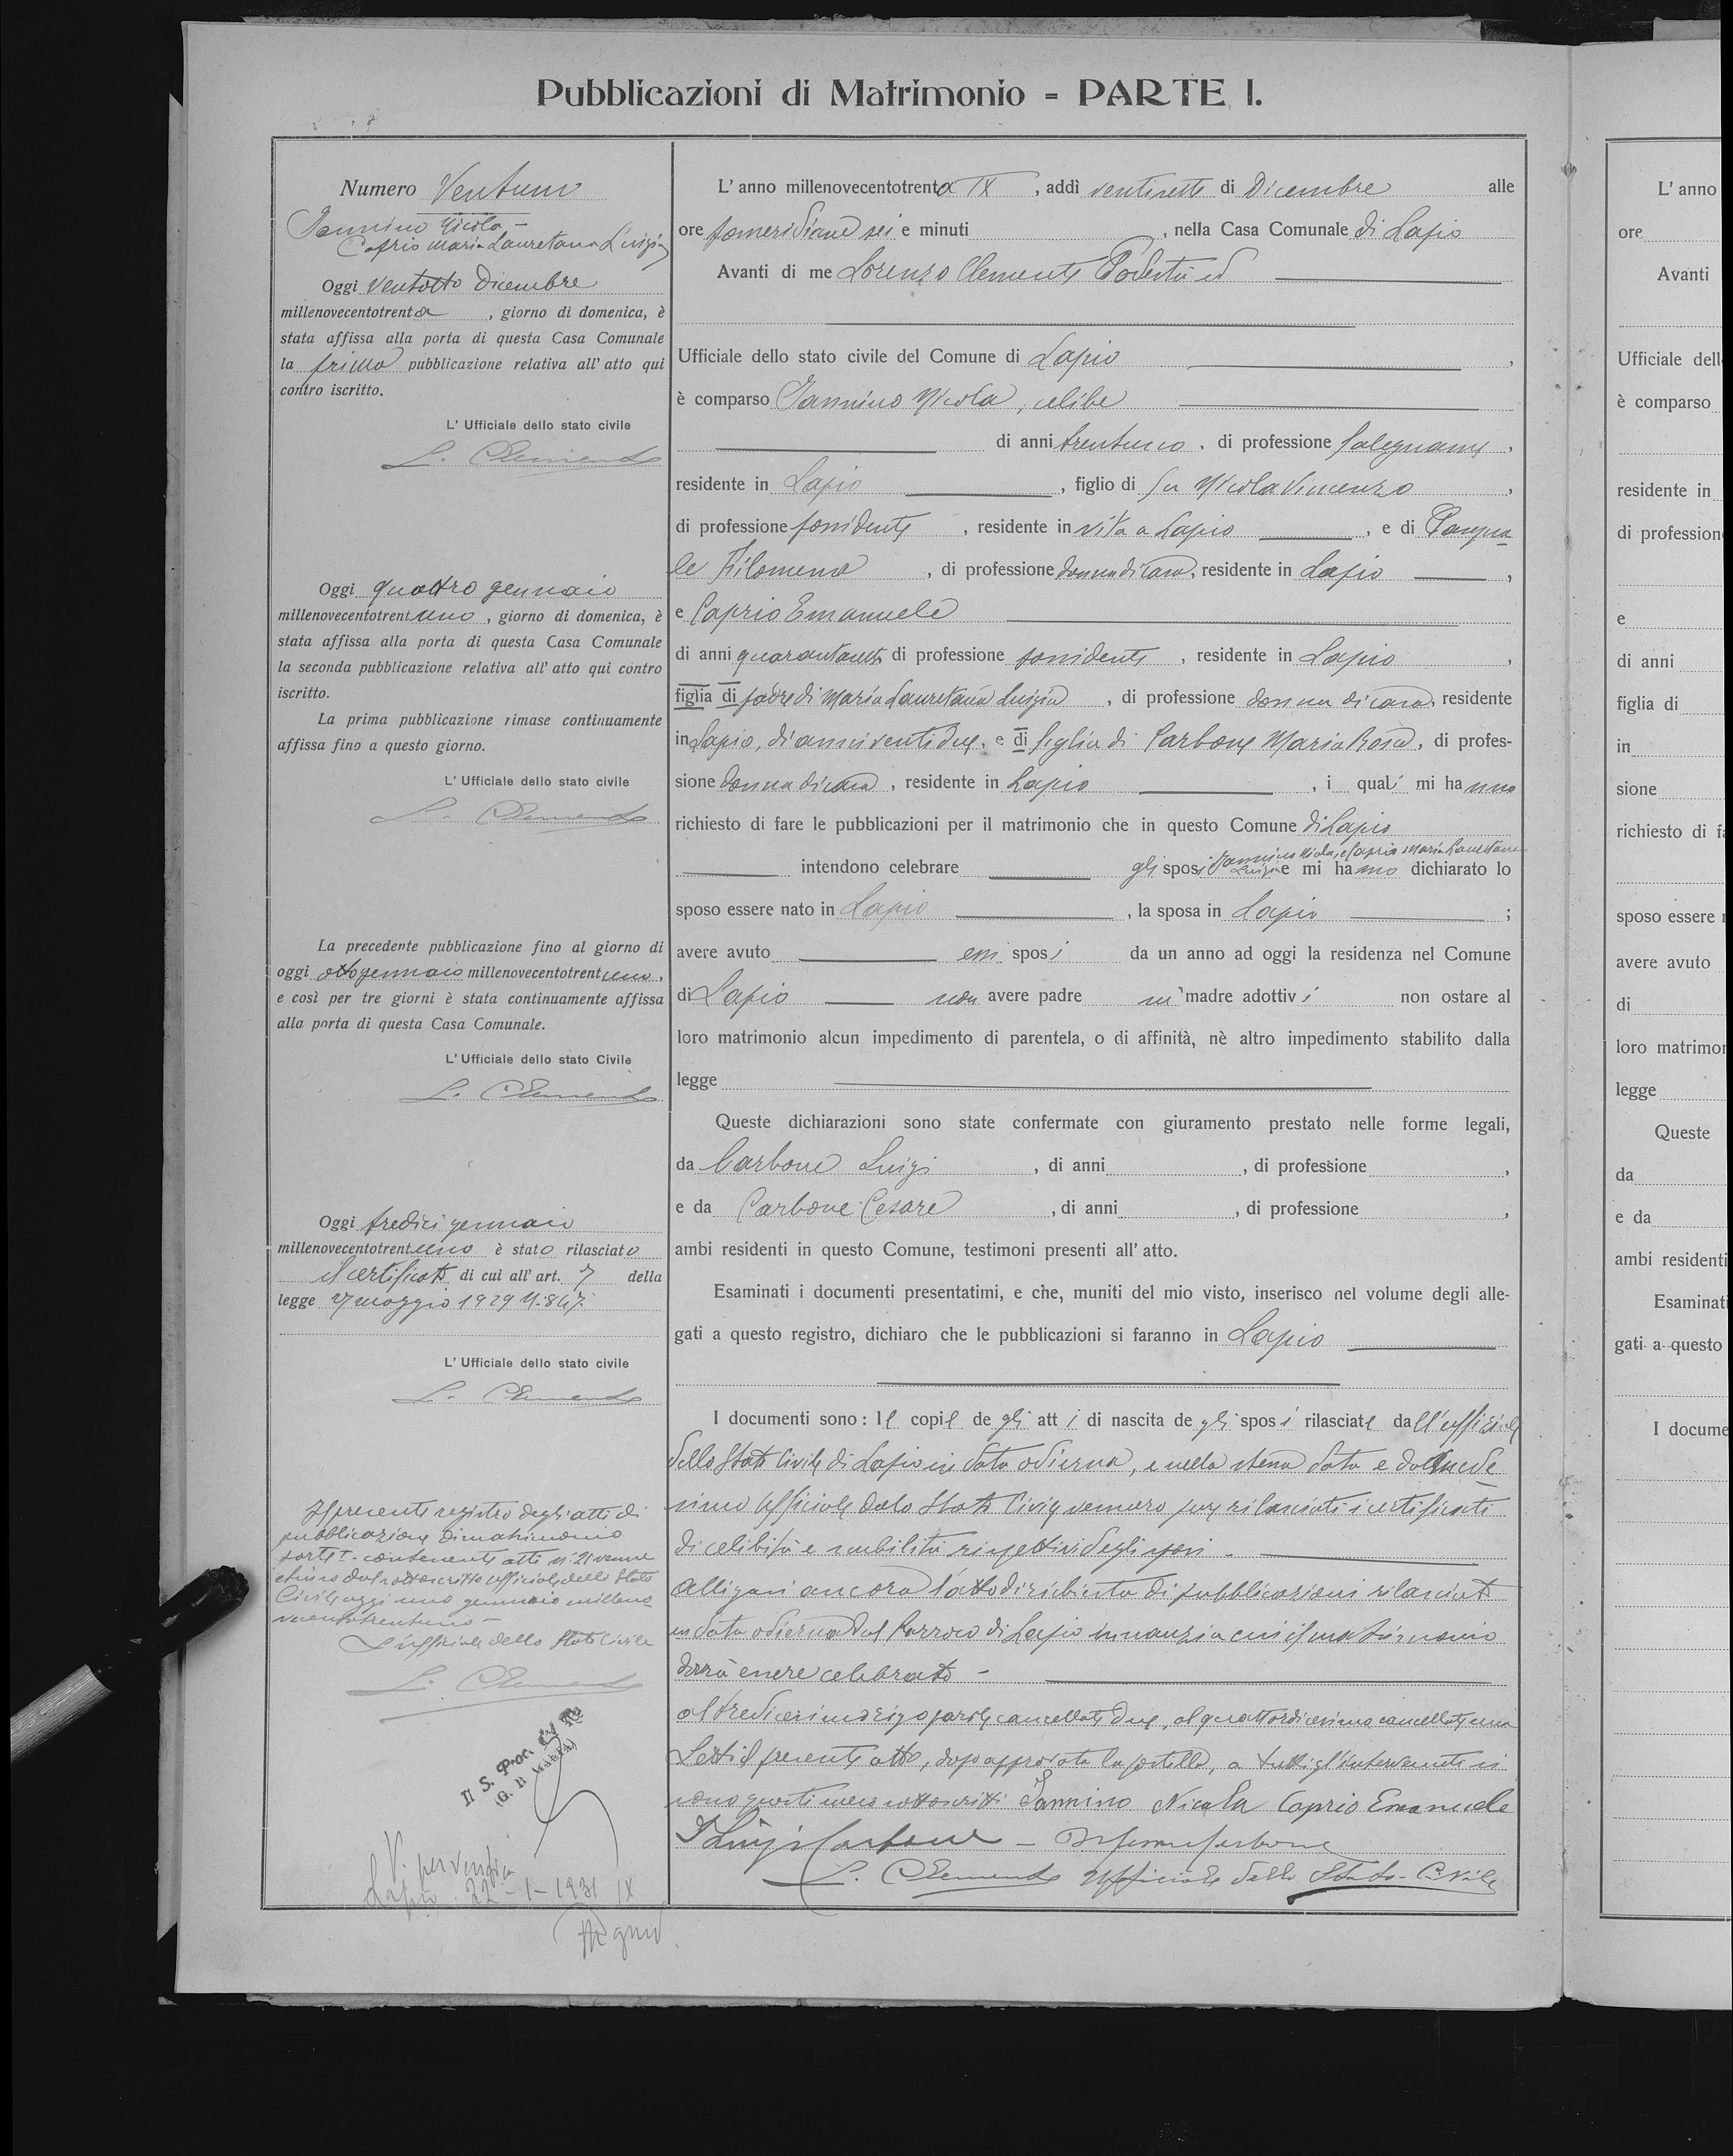 Pubblicazioni di Matrimonio - PARTE I.
Numero Ventuno
Iannino Nicola -
Caprio Maria Lauretana Luigia
Oggi ventotto Dicembre
millenovecentotrenta, giorno di domenica, è
stata affissa alla porta di questa Casa Comunale
la prima pubblicazione relativa all' atto qui
contro iscritto.
L' Ufficiale dello stato civile
L. Clemente
Oggi quattro gennaio
millenovecentotrentuno, giorno di domenica, è
stata affissa alla porta di questa Casa Comunale
la seconda pubblicazione relativa all' atto qui contro
iscritto.
La prima pubblicazione rimase continuamente
affissa fino a questo giorno.
L' Ufficiale dello stato civile
L. Clemente
La precedente pubblicazione fino al giorno di
oggi otto gennaio millenovecentotrentuno,
e così per tre giorni è stata continuamente affissa
alla porta di questa Casa Comunale.
L' Ufficiale dello stato Civile
L. Clemente
Oggi tredici gennaio
millenovecentotrentuno è stato rilasciato
il certificato di cui all' art. 7 della
legge 27 maggio 1929 N. 847.
L' Ufficiale dello stato civile
L. Clemente
Il presente registro degli atti di
pubblicazione di matrimonio
parte I - contenente atti n. 21 venne
chiuso dal sottoscritto ufficiale dello Stato
Civile oggi uno gennaio milleno-
vecentotrentuno -
L'ufficiale dello Stato Civile
L. Clemente
Il S. Proc. del Re
V. per verifica
Lapio 22-1-1931 IX
L' anno millenovecentotrenta IX, addì ventisette di Dicembre alle
ore pomeridiane sei e minuti , nella Casa Comunale di Lapio
Avanti di me Lorenzo Clemente Podestà ed
Ufficiale dello stato civile del Comune di Lapio,
è comparso Iannino Nicola, celibe
di anni trentuno, di professione falegname,
residente in Lapio, figlio di fu Nicola Vincenzo,
di professione possidente, residente in vita a Lapio, e di Pasqua-
le Filomena, di professione donna di casa, residente in Lapio,
e Caprio Emanuele
di anni di professione possidente, residente in Lapio,
figlia di padre di Maria Lauretana Luigia, di professione donna di casa, residente
in Lapio, di anni ventidue, e di figlia di Carbone Maria Rosa, di profes-
sione donna di casa, residente in Lapio, i quali mi hanno
richiesto di fare le pubblicazioni per il matrimonio che in questo Comune di Lapio
Iannino Nicola, e Caprio Maria Lauretana
intendono celebrare gli sposi Luigia e mi hanno dichiarato lo
sposo essere nato in Lapio, la sposa in Lapio;
avere avuto essi sposi da un anno ad oggi la residenza nel Comune
di Lapio non avere padre nè madre adottivi non ostare al
loro matrimonio alcun impedimento di parentela, o di affinità, nè altro impedimento stabilito dalla
legge
Queste dichiarazioni sono state confermate con giuramento prestato nelle forme legali,
da Carbone Luigi, di anni , di professione ,
e da Carbone Cesare, di anni , di professione ,
ambi residenti in questo Comune, testimoni presenti all' atto.
Esaminati i documenti presentatimi, e che, muniti del mio visto, inserisco nel volume degli alle-
gati a questo registro, dichiaro che le pubblicazioni si faranno in Lapio
I documenti sono: le copie degli atti di nascita degli sposi rilasciate dall'ufficiale
dello Stato Civile di Lapio in data odierna, e nella stessa data e dal mede-
simo Ufficiale dello Stato Civile vennero pure rilasciati i certificati
di celibità e nubilità rispettivi degli sposi -
Alligasi ancora l'atto di richiesta di pubblicazioni rilasciato
in data odierna dal Parroco di Lapio innanzi a cui il matrimonio
dovrà essere celebrato -
al tredicesimo rigo parole cancellate due, al quattordicesimo cancellate una
Letto il presente atto, dopo approvata la postilla, a tutti gl'intervenuti si
sono questi meco sottoscritti Iannino Nicola Caprio Emanuele
Luigi Carbone -
L. Clemente Ufficiale dello Stato Civile
L' anno
ore
Avanti
Ufficiale dell
è comparso
residente in
di profession
e
di anni
figlia di
in
sione
richiesto di fa
sposo essere
avere avuto
di
loro matrimon
legge
Queste
da
e da
ambi residenti
Esaminati
gati a questo
I docume